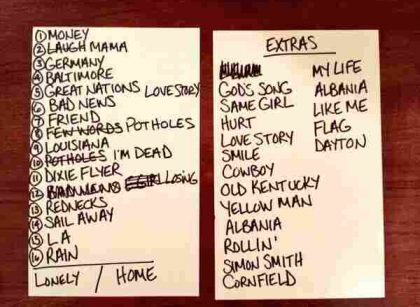 1 MONEY
2 LAUGH MAMA
3 GERMANY
4 BALTIMORE
5 GREAT NATIONS LOVE STORY
6 BAD NEWS
7 FRIEND
8 FEW WORDS POTHOLES
9 LOUISIANA
10 POTHOLES I'M DEAD
11 DIXIE FLYER
12 LOSING
13 REDNECKS
14 SAIL AWAY
15 LA
16 RAIN
LONELY / HOME
EXTRAS
GOD'S SONG
SAME GIRL
HURT
LOVE STORY
SMILE
COWBOY
OLD KENTUCKY
YELLOW MAN
ALBANIA
ROLLIN'
SIMON SMITH
CORNFIELD
MY LIFE
ALBANIA
LIKE ME
FLAG
DAYTON